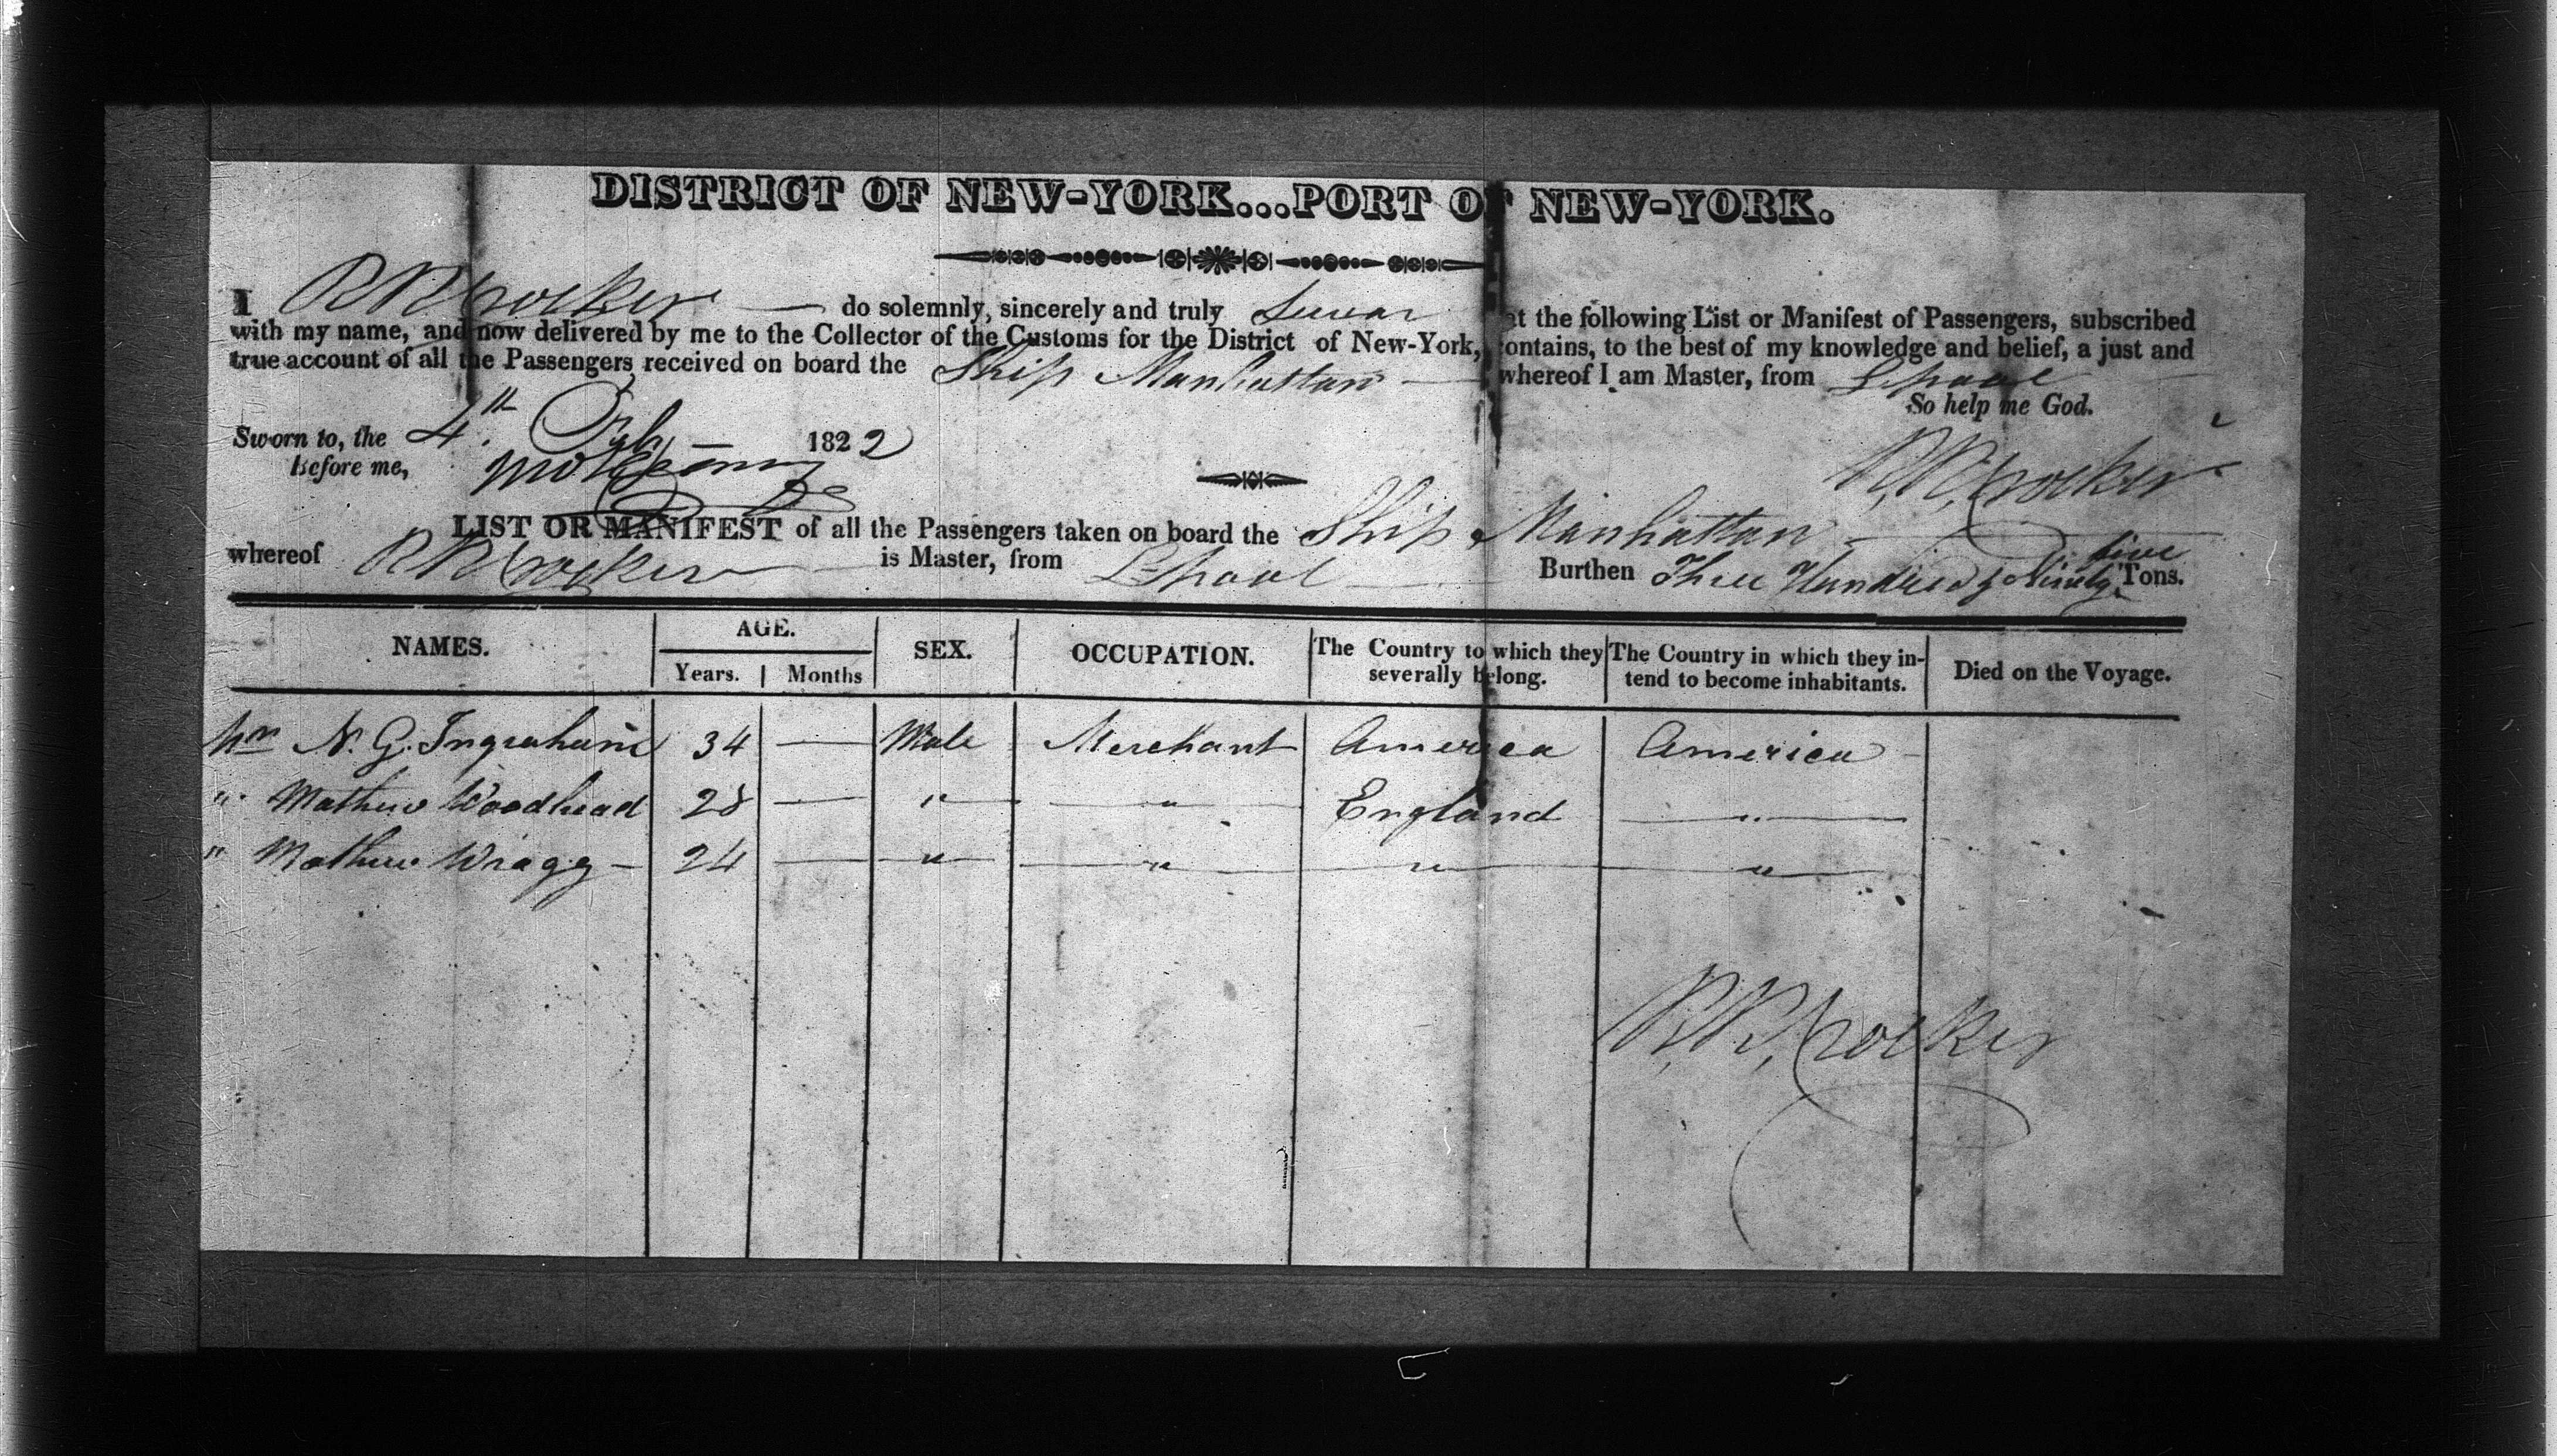 DISTRICT OF NEW-YORK...PORT OF NEW-YORK.
I R R Crocker — do solemnly, sincerely and truly Swear at the following List or Manifest of Passengers, subscribed
with my name, and now delivered by me to the Collector of the Customs for the District of New-York, contains, to the best of my knowledge and belief, a just and
true account of all the Passengers received on board the Ship Manhattan — whereof I am Master, from L.pool
So help me God.
Sworn to, the 4th. Feby — 1822
Before me,
R,R, Crocker
LIST OR MANIFEST of all the Passengers taken on board the Ship Manhattan
whereof R R Crocker is Master, from L-pool Burthen Three Hundred & Ninety five Tons.
NAMES. AGE. SEX. OCCUPATION. The Country to which they severally belong. The Country in which they intend to become inhabitants. Died on the Voyage.
Years. Months
Mr N. G. Ingraham 34 — Male Merchant America America
" Mathew Woodhead 28 — " " England "
" Mathew Wragg — 24 — " " " "
R,R, Crocker